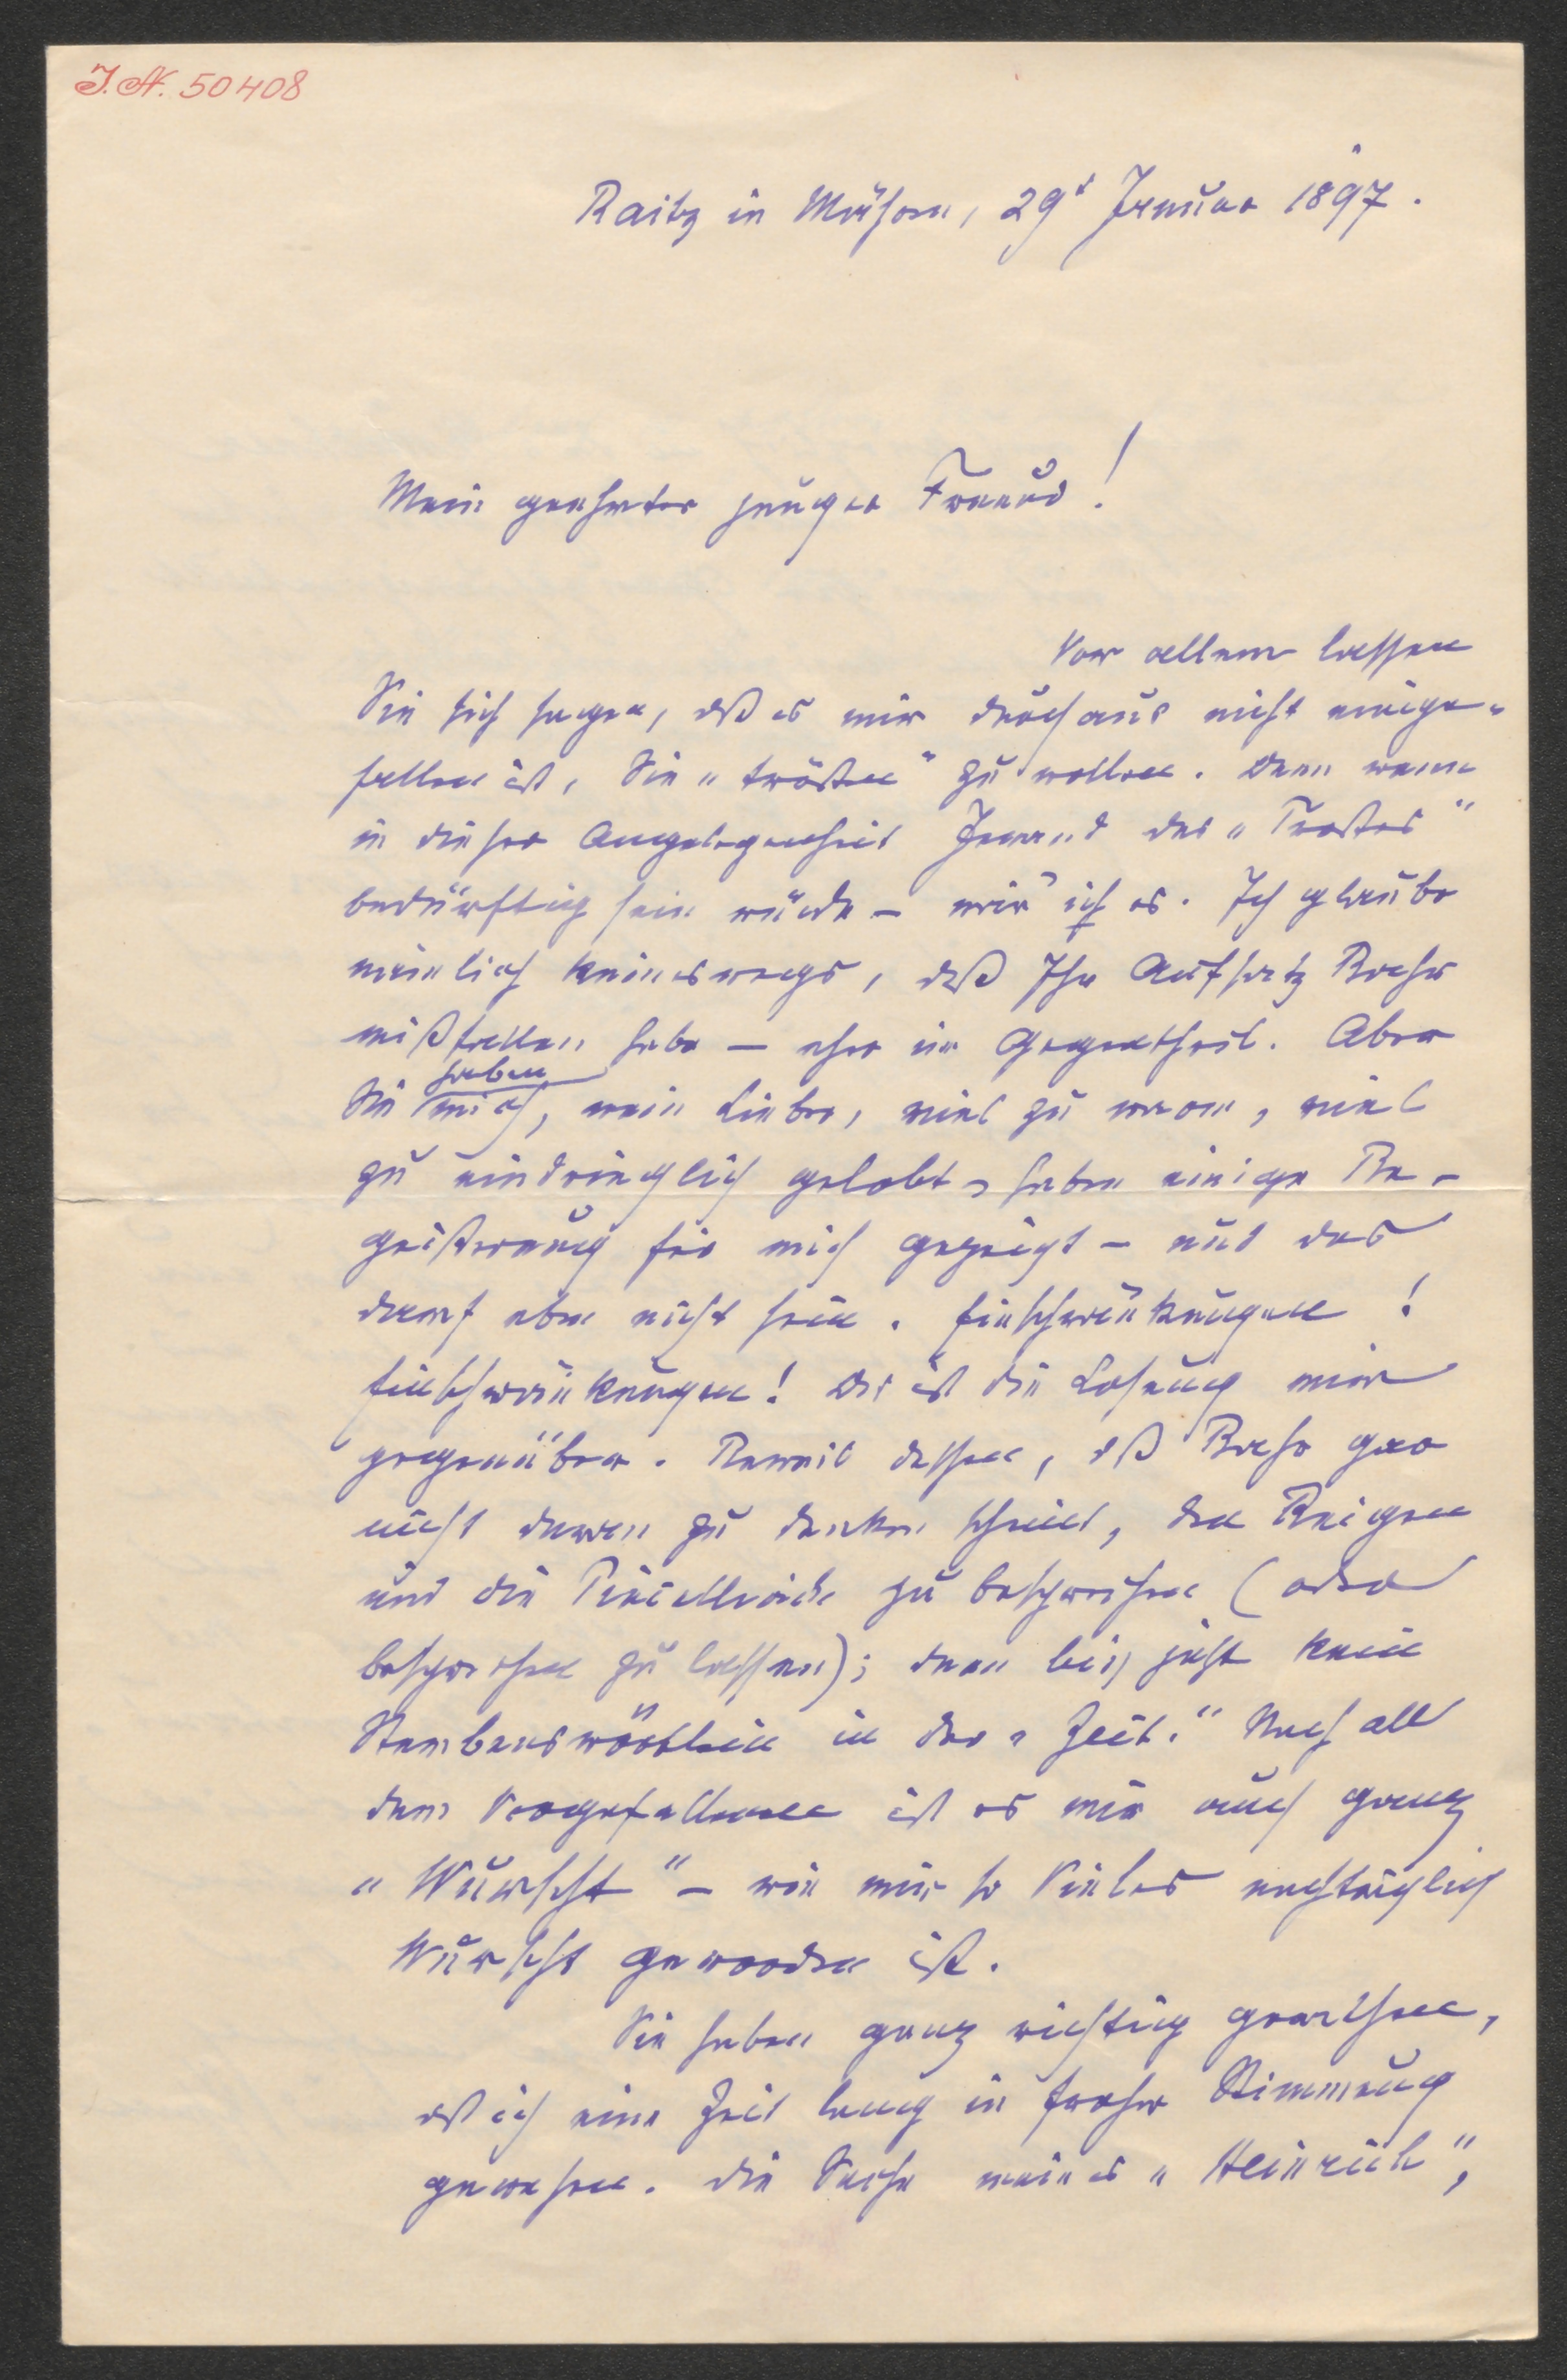 J.N. 50408
Raitz in Mähren, 29t Januar 1897.
Mein geehrter junger Freund!
Vor allem lassen
Sie sich sagen, daß es mir durchaus nicht einge-
fallen ist, Sie „trösten" zu wollen. Denn wenn
in dieser Angelegenheit Jemand des „Trostes"
bedürftig sein würde – wär' ich es. Ich glaube
nämlich keineswegs, daß Ihr Aufsatz Bahr
mißfallen habe – eher im Gegentheil. Aber
Sie haben mich, mein Lieber, viel zu warm, viel
zu eindringlich gelobt, haben einige Be-
geisterung für mich gezeigt – und das
darf eben nicht sein. Einschränkungen!
Einschränkungen! Das ist die Losung mir
gegenüber. Beweis dessen, daß Bahr gar
nicht daran zu denken scheint, den Reigen
und die Pincelliade zu besprechen (oder
besprechen zu lassen); denn bis jetzt kein
Sterbenswörtlein in der „Zeit." Nach all
dem Vorgefallenen ist es mir auch ganz
„Wurscht" – wie mir so Vieles nachträglich
Wurscht geworden ist.
Sie haben ganz richtig gerathen,
daß ich eine Zeit lang in froher Stimmung
gewesen. Die Sache meines „Heinrich",